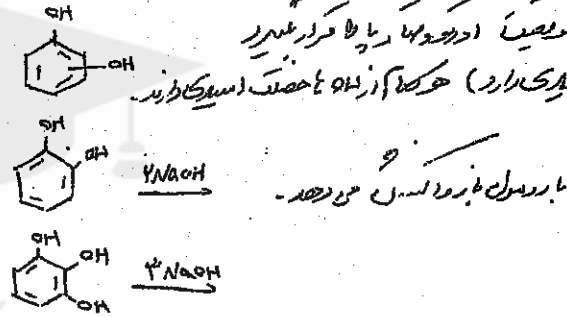 OH
OH
موقعیت اورتو و متا و یا پارا قرار بگیرد
هر کدام از OH ها خصلت اسیدی دارند.
OH
OH
۲NaOH
با دو مول باز واکنش می دهد.
OH
OH
OH
۳NaOH